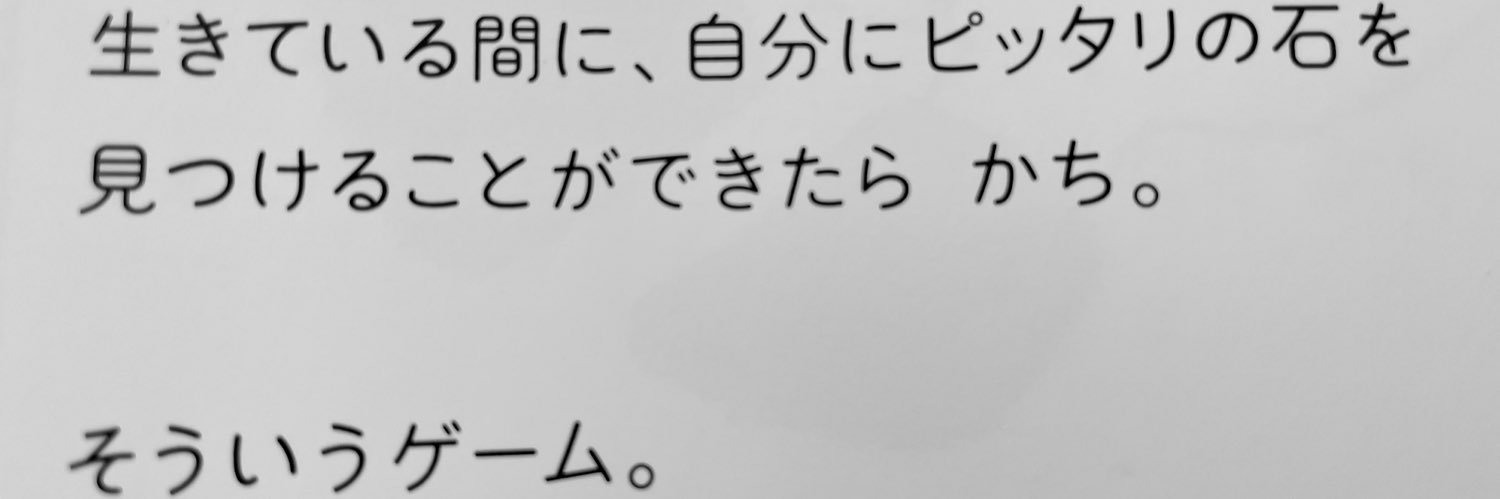 生きている間に、自分にピッタリの石を
見つけることができたら かち。
そういうゲーム。